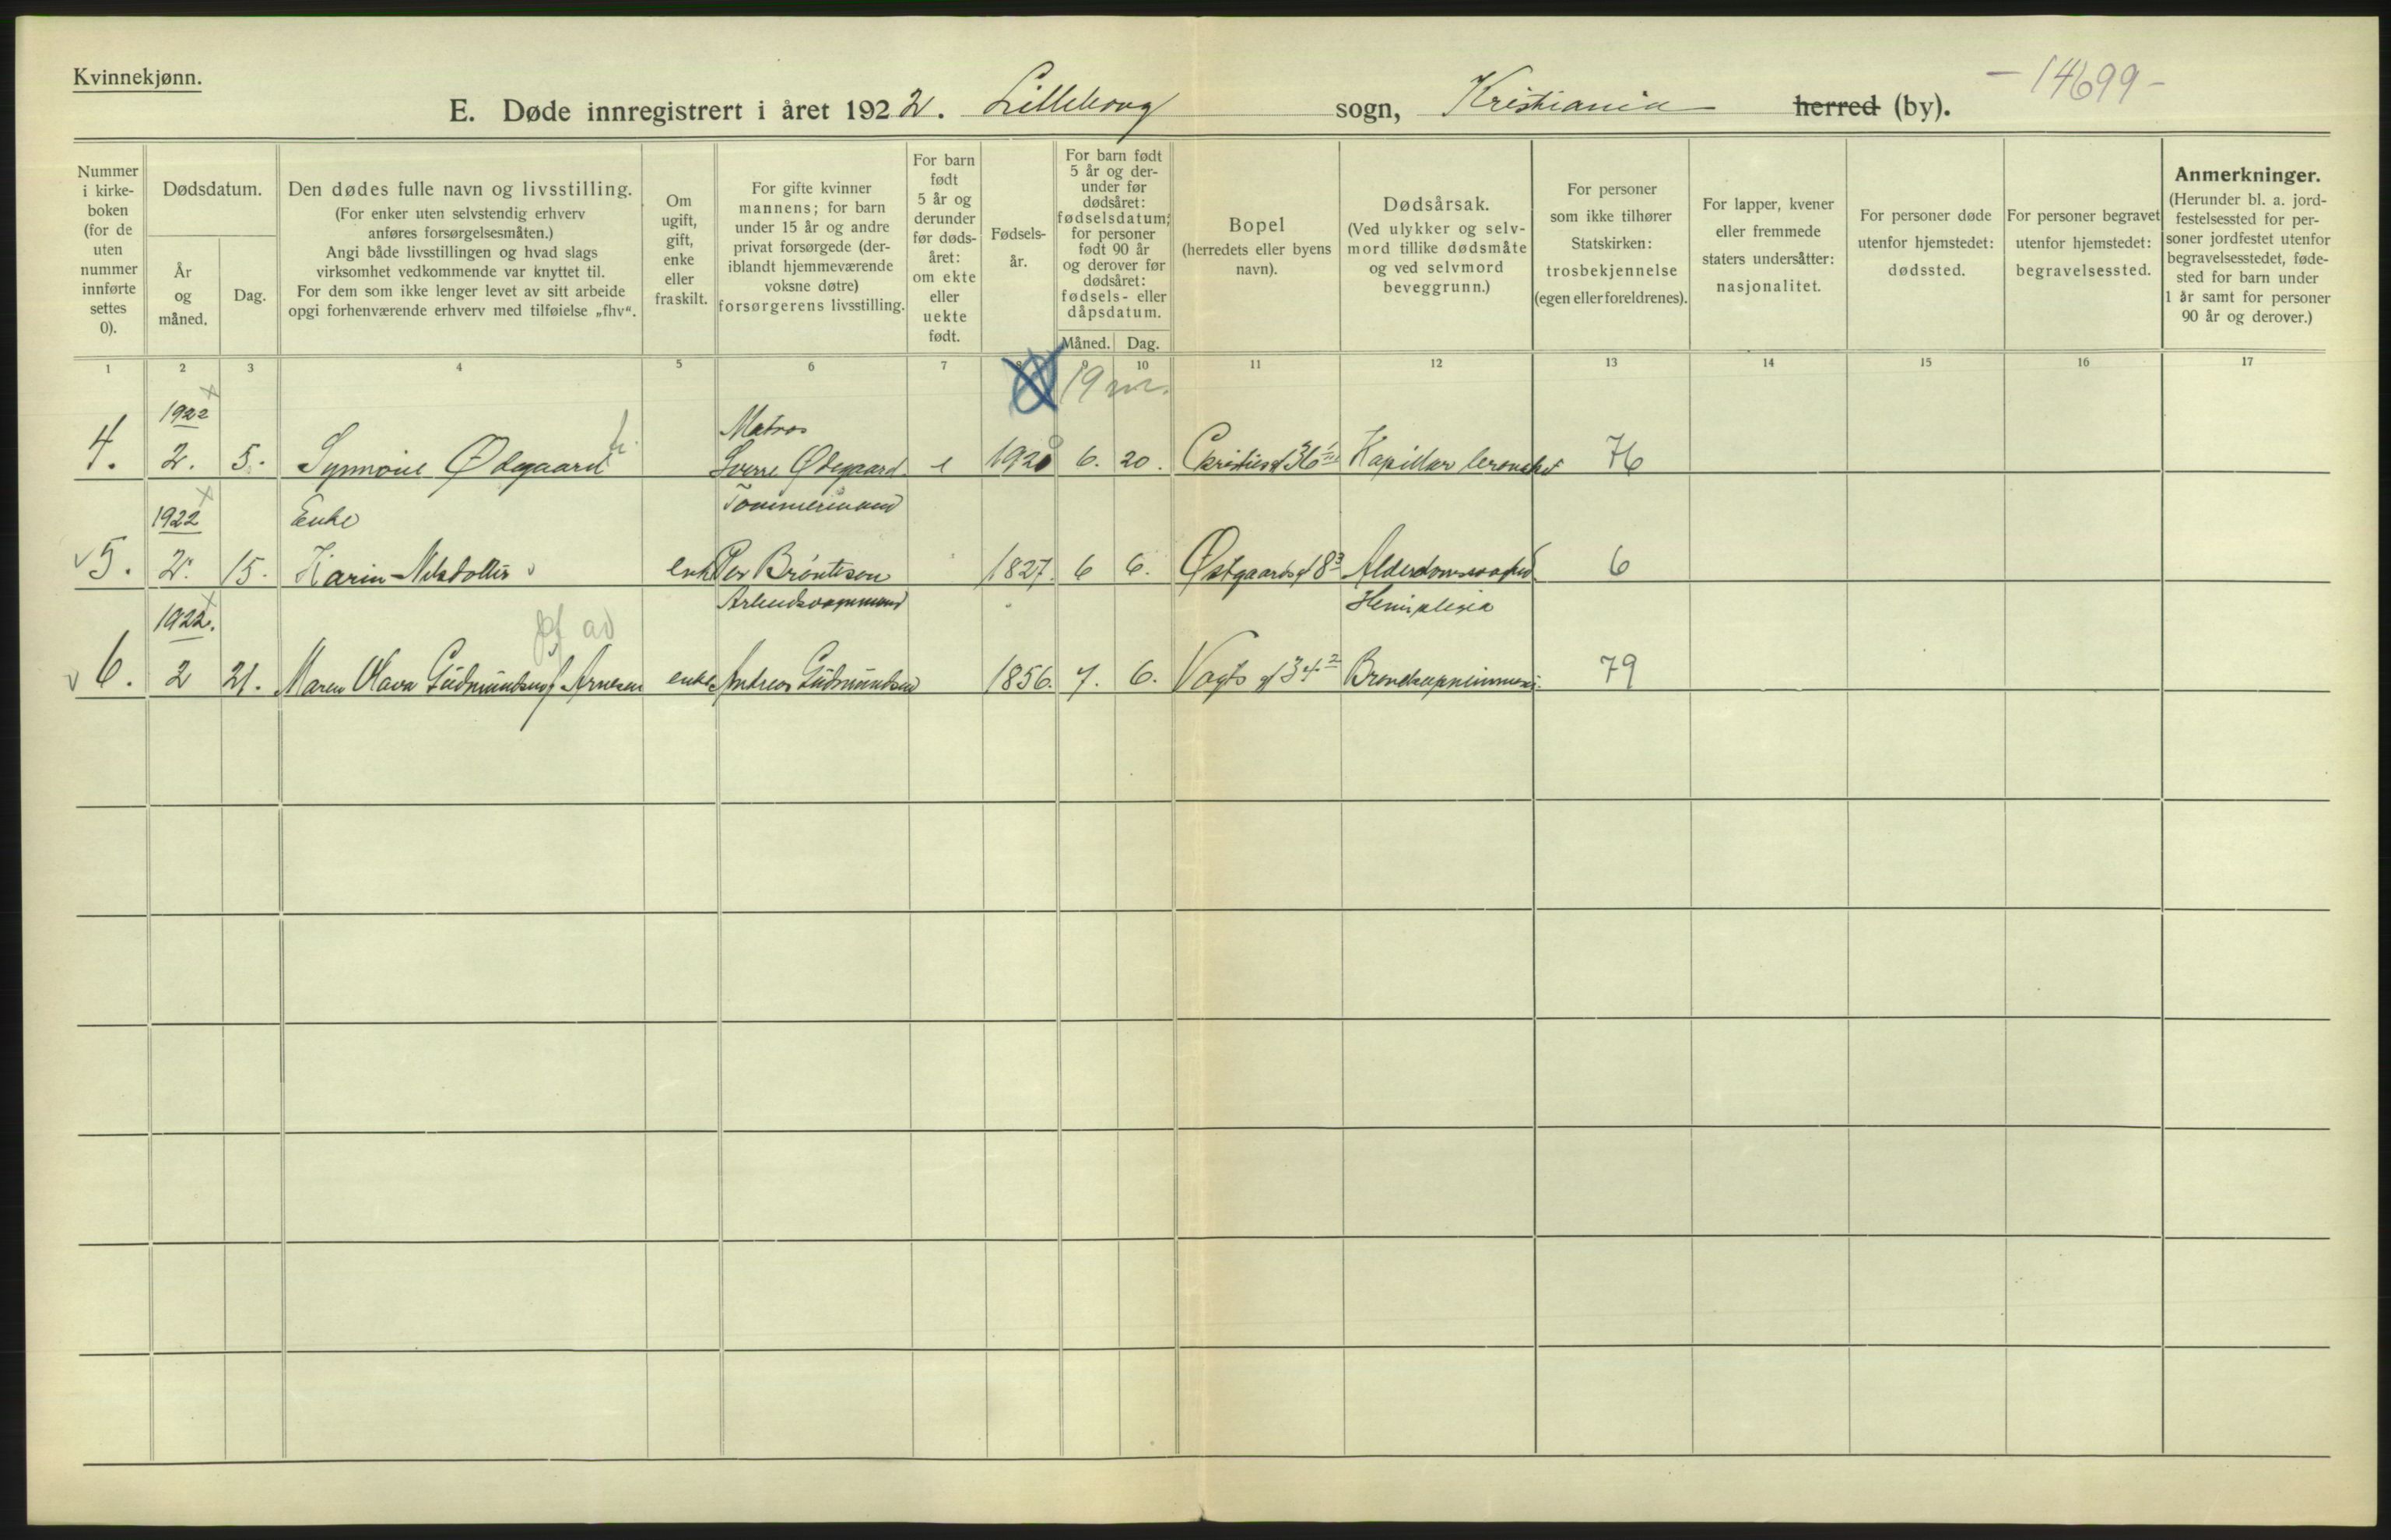 Kvinnekjønn.
- 14699 -
E. Døde innregistrert i året 1922. Lilleborg sogn, Kristiania herred (by).
Nummer i kirke- boken (for de uten nummer innførte settes 0).
Dødsdatum.
År og måned.
Dag.
Den dødes fulle navn og livsstilling.
(For enker uten selvstendig erhverv
anføres forsørgelsesmåten.)
Angi både livsstillingen og hvad slags
virksomhet vedkommende var knyttet til.
For dem som ikke lenger levet av sitt arbeide
opgi forhenværende erhverv med tilføielse „fhv“.
Om ugift, gift, enke eller fraskilt.
For gifte kvinner
mannens; for barn
under 15 år og andre
privat forsørgede (der-
iblandt hjemmeværende
voksne døtre)
forsørgerens livsstilling.
For barn født 5 år og derunder før døds- året: om ekte eller uekte født.
Fødsels- år.
For barn født
5 år og der-
under før
dødsåret:
fødselsdatum;
for personer
født 90 år
og derover før
dødsåret:
fødsels- eller
dåpsdatum.
Måned. Dag.
Bopel
(herredets eller byens
navn).
Dødsårsak.
(Ved ulykker og selv-
mord tillike dødsmåte
og ved selvmord
beveggrunn.)
For personer
som ikke tilhører
Statskirken:
trosbekjennelse
(egen eller foreldrenes).
For lapper, kvener
eller fremmede
staters undersåtter:
nasjonalitet.
For personer døde
utenfor hjemstedet:
dødssted.
For personer begravet
utenfor hjemstedet:
begravelsessted.
Anmerkninger.
(Herunder bl. a. jord-
festelsessted for per-
soner jordfestet utenfor
begravelsesstedet, føde-
sted for barn under
1 år samt for personer
90 år og derover.)
1 2 3 4 5 6 7 8 9 10 11 12 13 14 15 16 17
19 m.
1922 Matros
4. 2. 5. Synnøve Ødegaard Sverre Ødegaard e 1920 6. 20. Christies g 36 Kapillær bronchit 76
1922 Enke Tømmermand
5. 2. 15. Karin Nilsdotter enke Per Brönteson 1827 6 6. Østgaards g 8 3 Alderdomssvakhed 6
1922. Hemiplegia
6. 2 21. Maren Olava Gudmundsen f. Arnesen enke Andreas Gudmundsen 1856. 7. 6. Vogts g 34 2 79